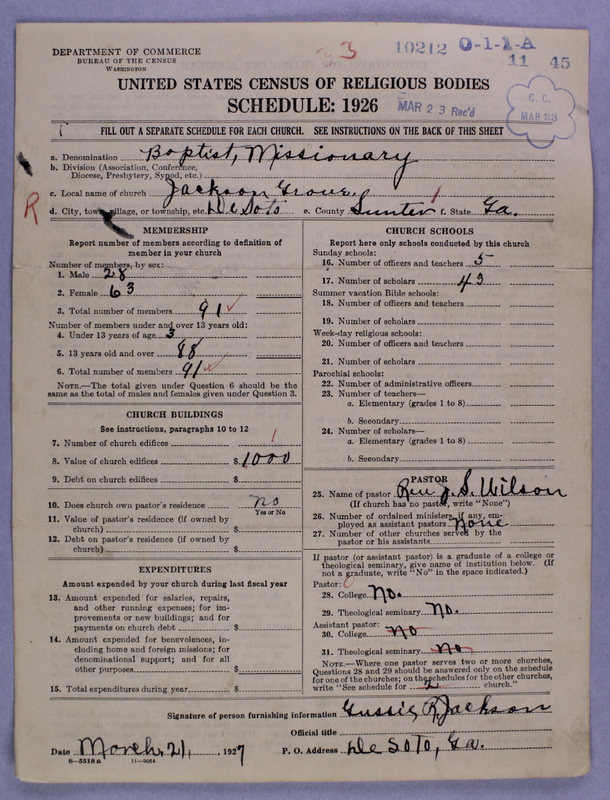 DEPARTMENT OF COMMERCE
BUREAU OF THE CENSUS
WASHINGTON
33
10212 O-1-1-A
11 45
UNITED STATES CENSUS OF RELIGIOUS BODIES
SCHEDULE: 1926
MAR 23 Rec'd
C. C.
MAR 23
FILL OUT A SEPARATE SCHEDULE FOR EACH CHURCH. SEE INSTRUCTIONS ON THE BACK OF THIS SHEET
a. Denomination Baptist, Missionary
b. Division (Association, Conference,
Diocese, Presbytery, Synod, etc.)
c. Local name of church Jackson Grove.
R
d. City, town, village, or township, etc. De Soto e. County Sumter f. State Ga.
MEMBERSHIP
Report number of members according to definition of
member in your church
Number of members, by sex:
1. Male 28
2. Female 63
3. Total number of members 91
Number of members under and over 13 years old:
4. Under 13 years of age 3
5. 13 years old and over 88
6. Total number of members 91
NOTE.—The total given under Question 6 should be the
same as the total of males and females given under Question 3.
CHURCH BUILDINGS
See instructions, paragraphs 10 to 12
7. Number of church edifices 1
8. Value of church edifices $ 1000
9. Debt on church edifices $
10. Does church own pastor's residence No
Yes or No
11. Value of pastor's residence (if owned by
church) $
12. Debt on pastor's residence (if owned by
church) $
EXPENDITURES
Amount expended by your church during last fiscal year
13. Amount expended for salaries, repairs,
and other running expenses; for im-
provements or new buildings; and for
payments on church debt $
14. Amount expended for benevolences, in-
cluding home and foreign missions; for
denominational support; and for all
other purposes $
15. Total expenditures during year $
CHURCH SCHOOLS
Report here only schools conducted by this church
Sunday schools:
16. Number of officers and teachers 5
17. Number of scholars 43
Summer vacation Bible schools:
18. Number of officers and teachers
19. Number of scholars
Week-day religious schools:
20. Number of officers and teachers
21. Number of scholars
Parochial schools:
22. Number of administrative officers
23. Number of teachers—
a. Elementary (grades 1 to 8)
b. Secondary
24. Number of scholars—
a. Elementary (grades 1 to 8)
b. Secondary
PASTOR
25. Name of pastor Rev J. S. Wilson
(If church has no pastor, write "None")
26. Number of ordained ministers, if any, em-
ployed as assistant pastors None
27. Number of other churches served by the
pastor or his assistants
If pastor (or assistant pastor) is a graduate of a college or
theological seminary, give name of institution below. (If
not a graduate, write "No" in the space indicated.)
Pastor: 0
28. College No.
29. Theological seminary No.
Assistant pastor:
30. College No
31. Theological seminary No
NOTE.—Where one pastor serves two or more churches,
Questions 28 and 29 should be answered only on the schedule
for one of the churches; on the schedules for the other churches,
write "See schedule for 2 church."
Signature of person furnishing information Gussie R Jackson
Official title
Date March, 21, 1927 P. O. Address De Soto, Ga.
8—5518a 11—9054